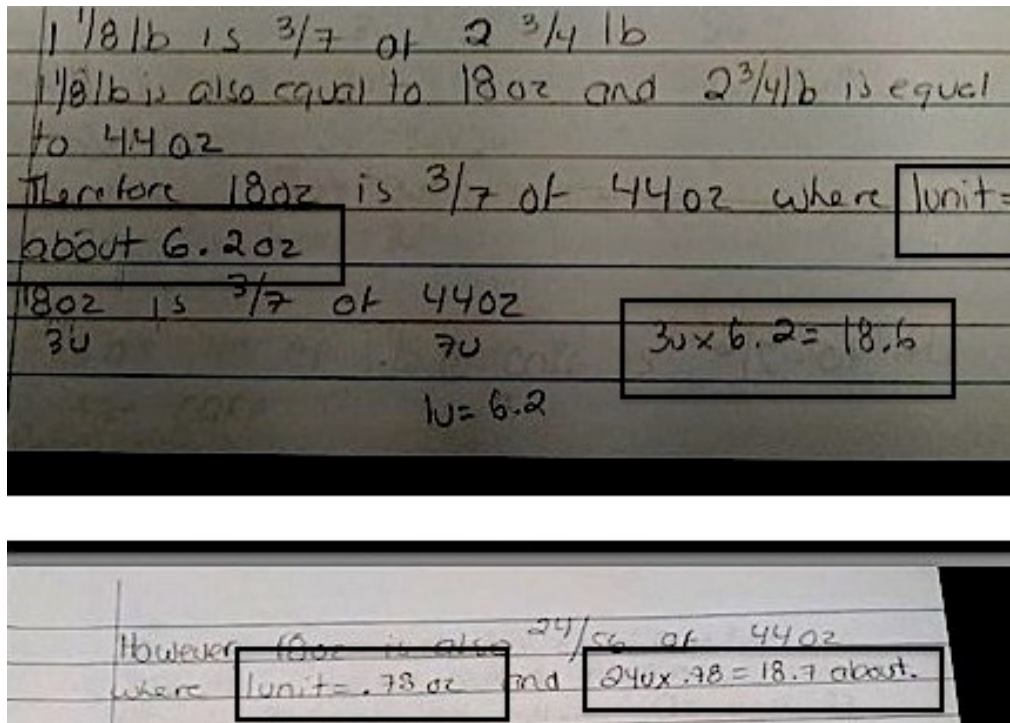 1 1/8 lb is 3/7 of 2 3/4 lb
1 1/8 lb is also equal to 18oz and 2 3/4 lb is equal
to 44oz
Therefore 18oz is 3/7 of 44oz where 1unit=
about 6.2oz
18oz is 3/7 of 44oz
3u 7u 3u x 6.2= 18.6
1u= 6.2
However 18oz is also 24/56 of 44oz
where 1unit= .78 oz and 24u x .78 = 18.7 about.